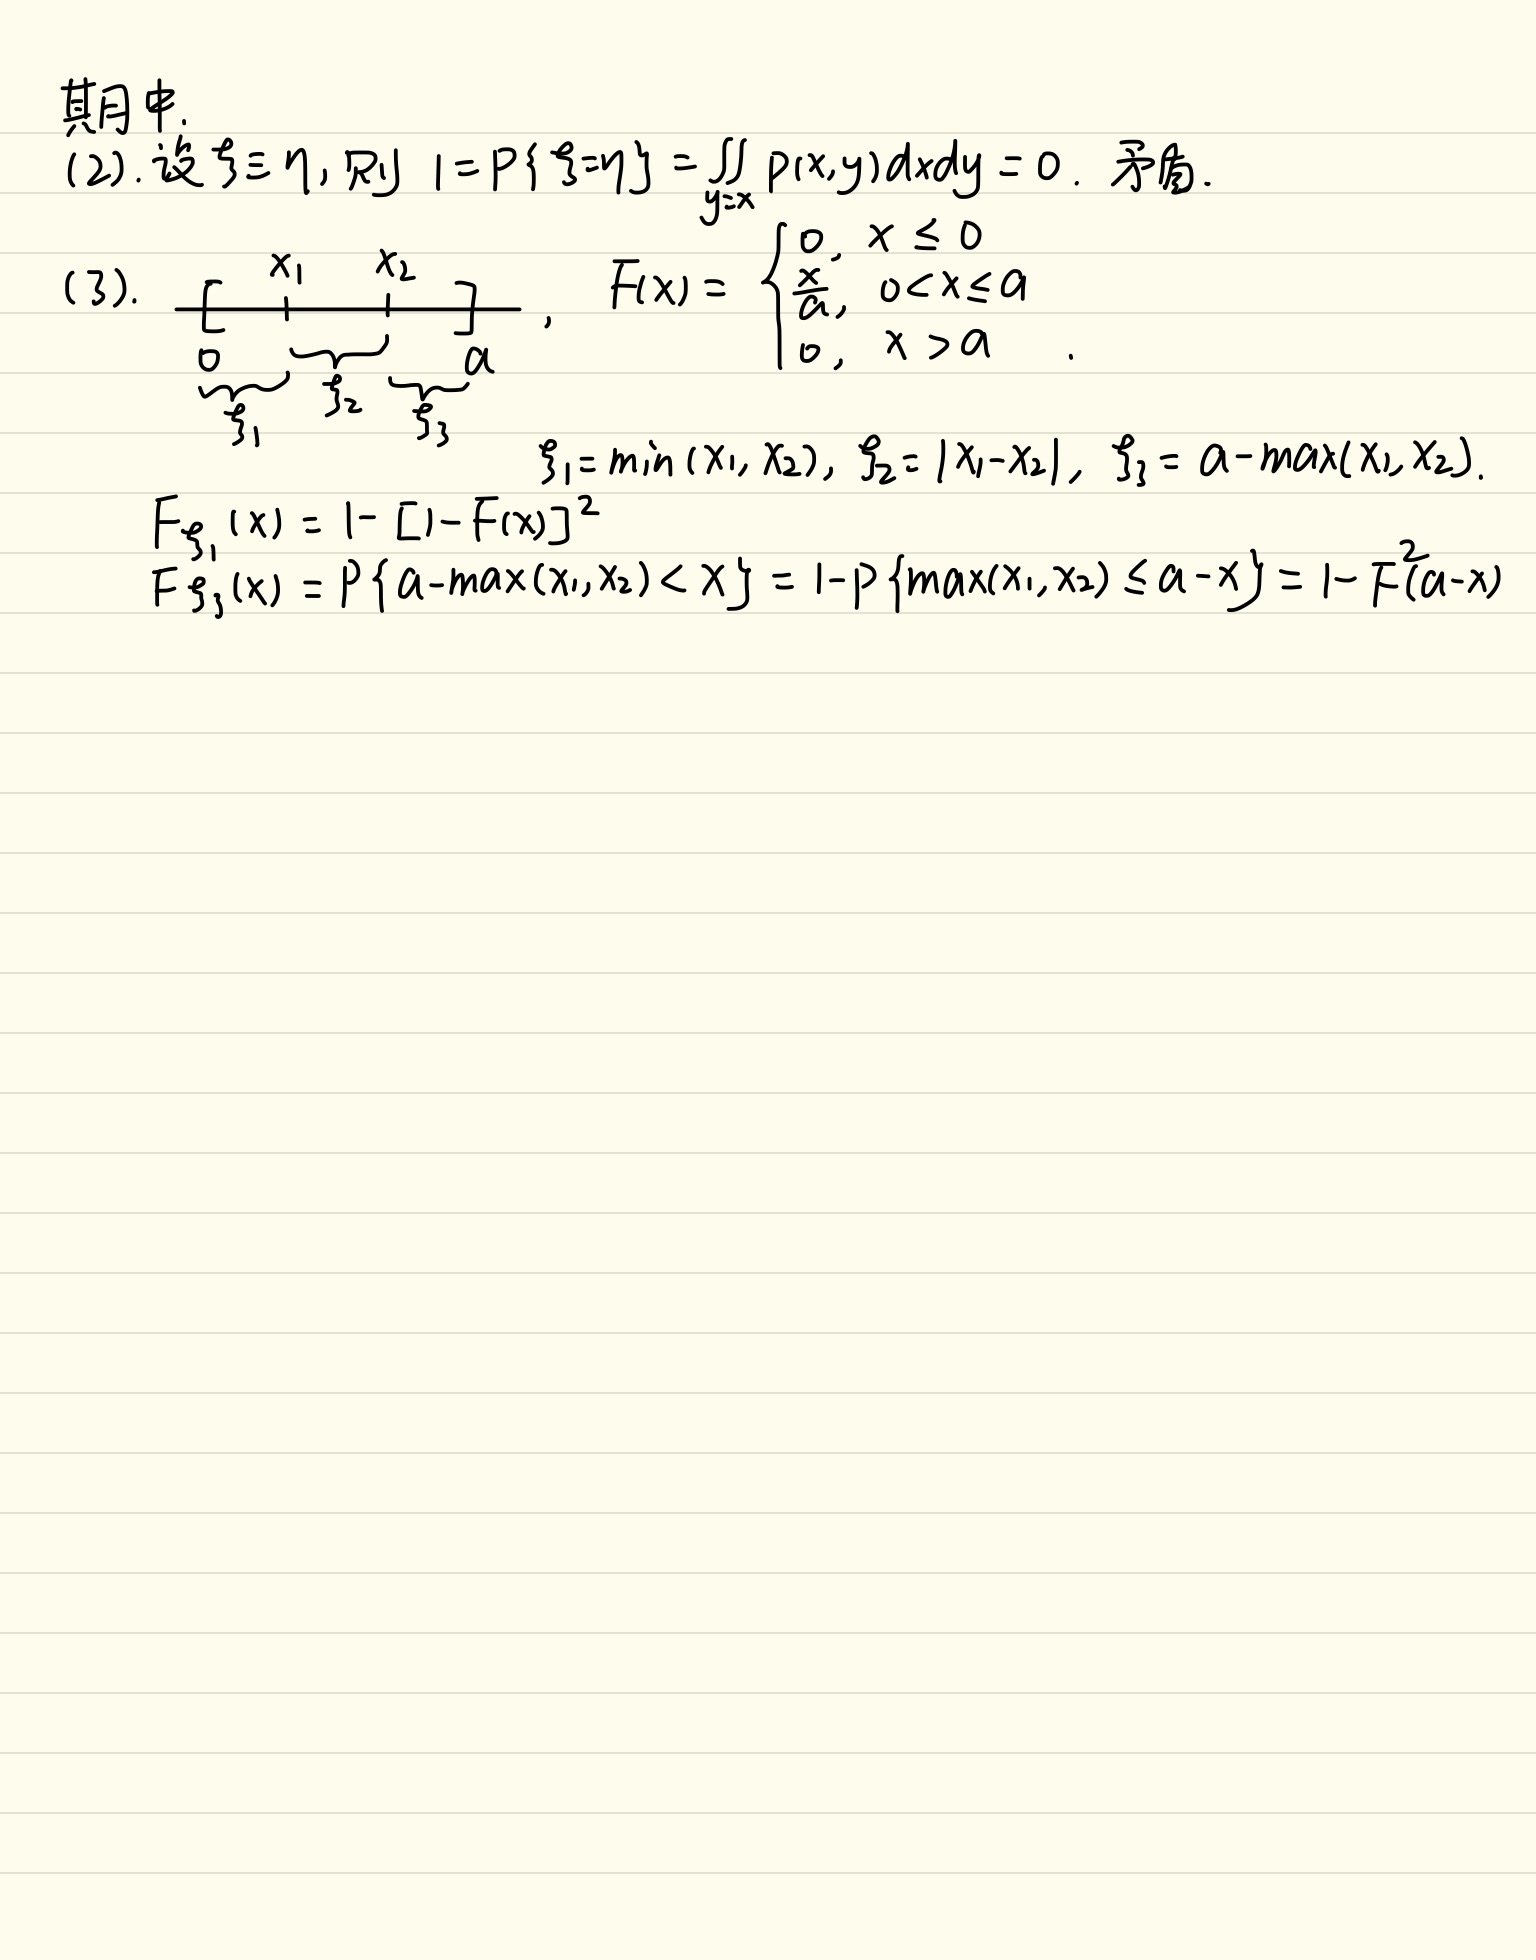 期中.
(2). 设 ξ≡η, 则 1=P{ξ=η} = ∬_{y=x} p(x,y)dxdy = 0. 矛盾.
(3). [ x₁ x₂ ] , F(x) = { 0, x ≤ 0
x/a, 0<x≤a
0, x>a .
0 a
ξ₁ ξ₂ ξ₃
ξ₁=min(x₁, x₂), ξ₂=|x₁-x₂|, ξ₃= a-max(x₁,x₂).
F_{ξ₁}(x) = 1-[1-F(x)]²
F_{ξ₃}(x) = P{a-max(x₁,x₂)<x} = 1-P{max(x₁,x₂)≤a-x} = 1-F²(a-x)